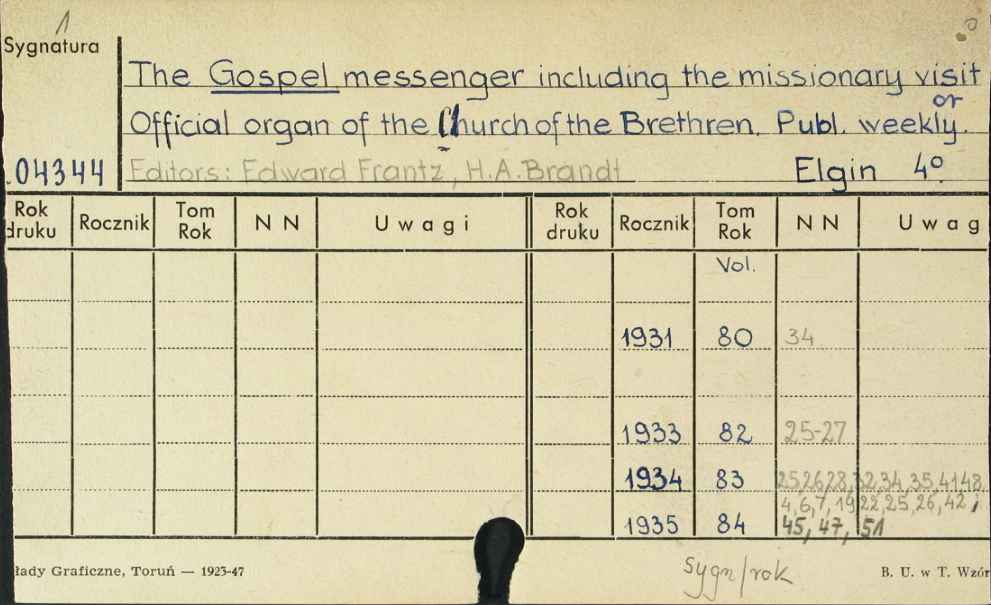 Sygnatura
The Gospel messenger including the missionary visit
or
Official organ of the Church of the Brethren. Publ. weekly.
.04344 Editors: Edward Frantz, H.A. Brandt Elgin 4º
Rok druku Rocznik Tom Rok N N Uwagi Rok druku Rocznik Tom Rok N N Uwag
Vol.
1931 80 34
1933 82 25-27
1934 83 25,26,28,32,34,35,41 48
4,6,7,19,22,25,26,42;
1935 84 45, 47, 51
łady Graficzne, Toruń — 1923-47 Sygn/rok B. U. w T. Wzór